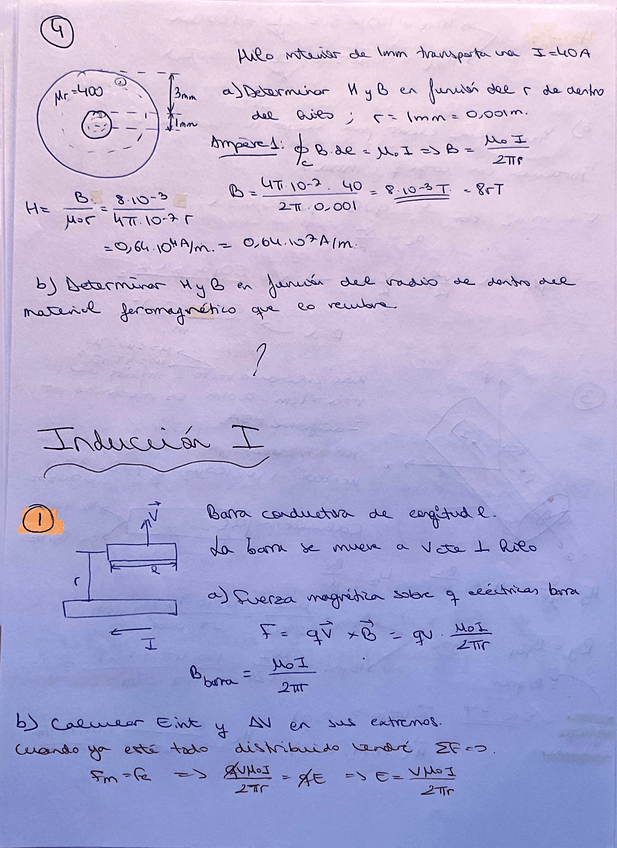 4
Hilo interior de 1mm transporta una I=40A
μr=400
3mm
1mm
a) Determinar H y B en función del r de dentro
del hilo ; r = 1mm = 0,001m.
Ampère 1: ∮c B·dl = μ₀ I => B = μ₀ I / 2πr
B = 4π·10⁻⁷ · 40 / 2π · 0,001 = 8·10⁻³ T = 8rT
H = B / μ₀r = 8·10⁻³ / 4π·10⁻⁷ r
= 0,64·10⁴ A/m. = 0,64·10⁷ A/m.
b) Determinar H y B en función del radio de dentro del
material feromagnético que lo recubre.
?
Inducción I
1
V
l
r
I
Barra conductora de longitud l.
La barra se mueve a V cte ⊥ hilo
a) Fuerza magnética sobre q eléctricas barra
F = qV × B = qV · μ₀I / 2πr
B barra = μ₀I / 2πr
b) Calcular Eint y ΔV en sus extremos.
Cuando ya esté todo distribuido tendré ΣF=0.
Fm = Fe => qVμ₀I / 2πr = qE => E = Vμ₀I / 2πr